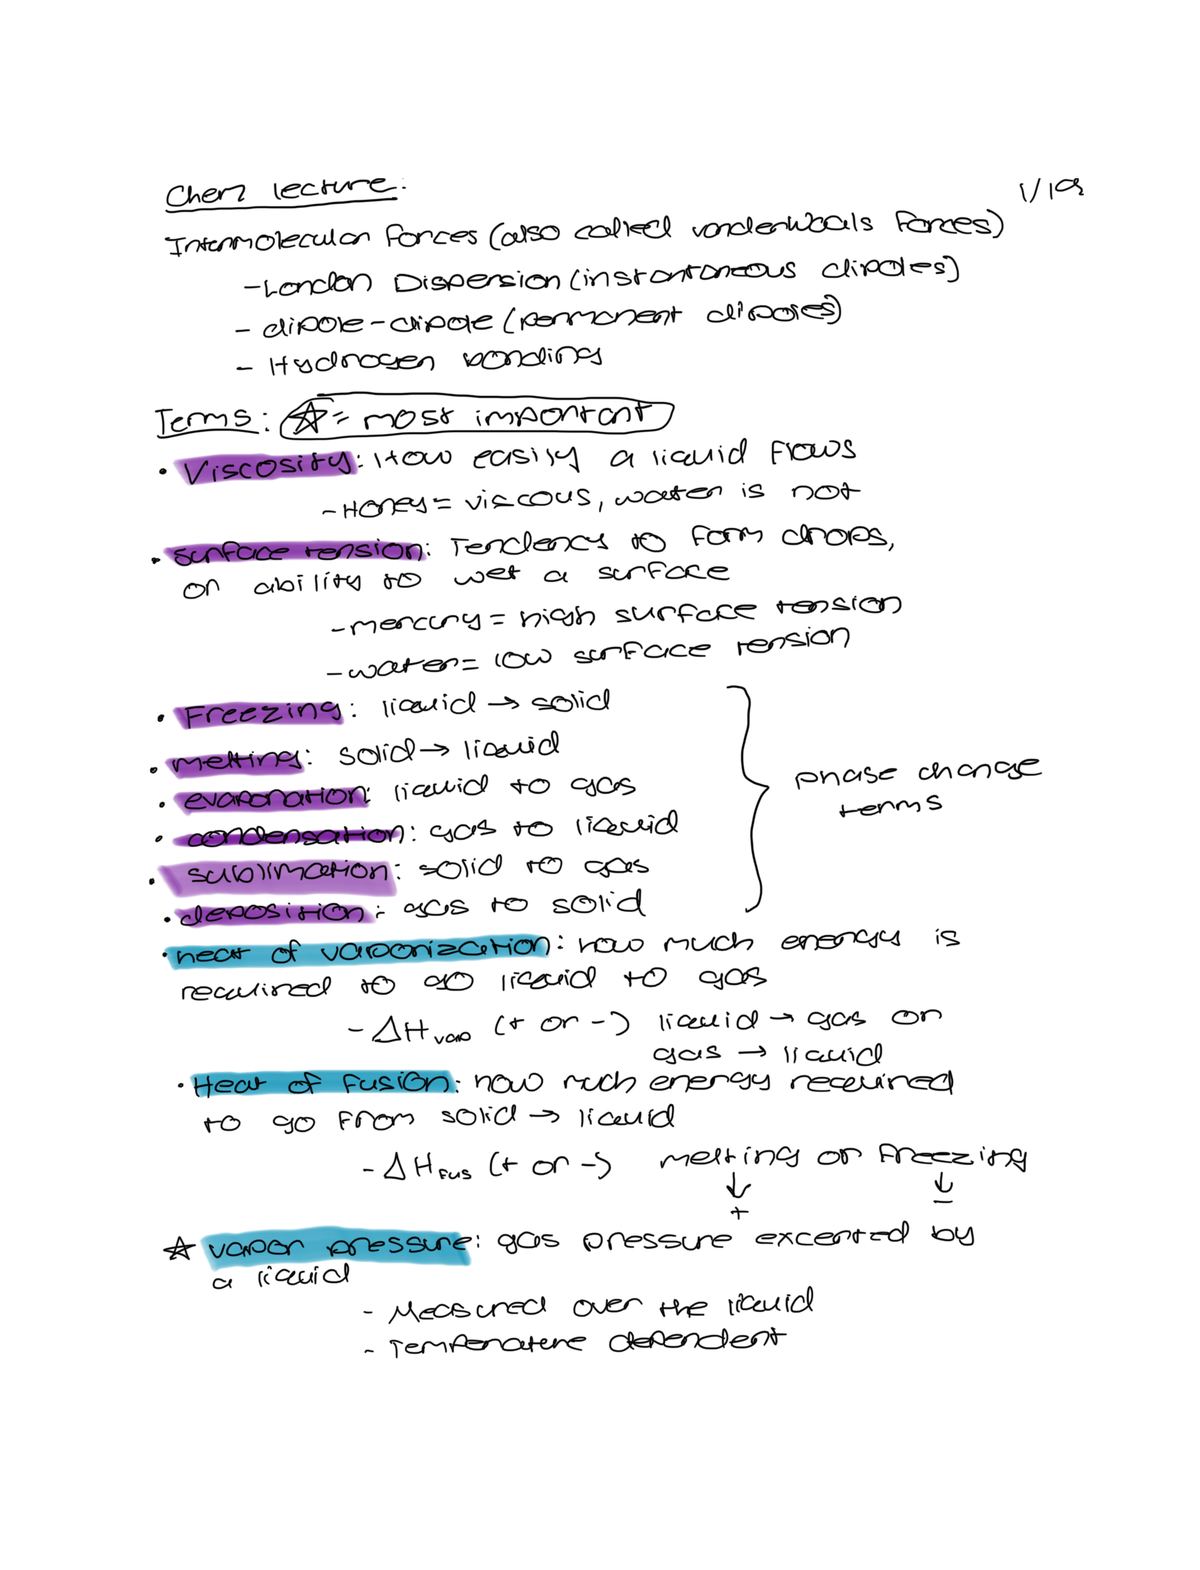 Chem lecture: 1/19
Intermolecular forces (also called vanderWaals forces)
- London Dispersion (instantaneous dipoles)
- dipole-dipole (permanent dipoles)
- Hydrogen bonding
Terms: ☆ = most important
• Viscosity: How easily a liquid flows
- Honey = viscous, water is not
• surface tension: Tendency to form drops,
or ability to wet a surface
- mercury = high surface tension
- water = low surface tension
• Freezing: liquid → solid
• melting: solid → liquid
• evaporation: liquid to gas
phase change
terms
• condensation: gas to liquid
• sublimation: solid to gas
• deposition: gas to solid
• heat of vaporization: how much energy is
required to go liquid to gas
- ΔHvap (+ or -) liquid → gas or
gas → liquid
• Heat of fusion: how much energy required
to go from solid → liquid
- ΔHfus (+ or -) melting or freezing
↓ ↓
+ -
☆ vapor pressure: gas pressure excerted by
a liquid
- Measured over the liquid
- Temperature dependent